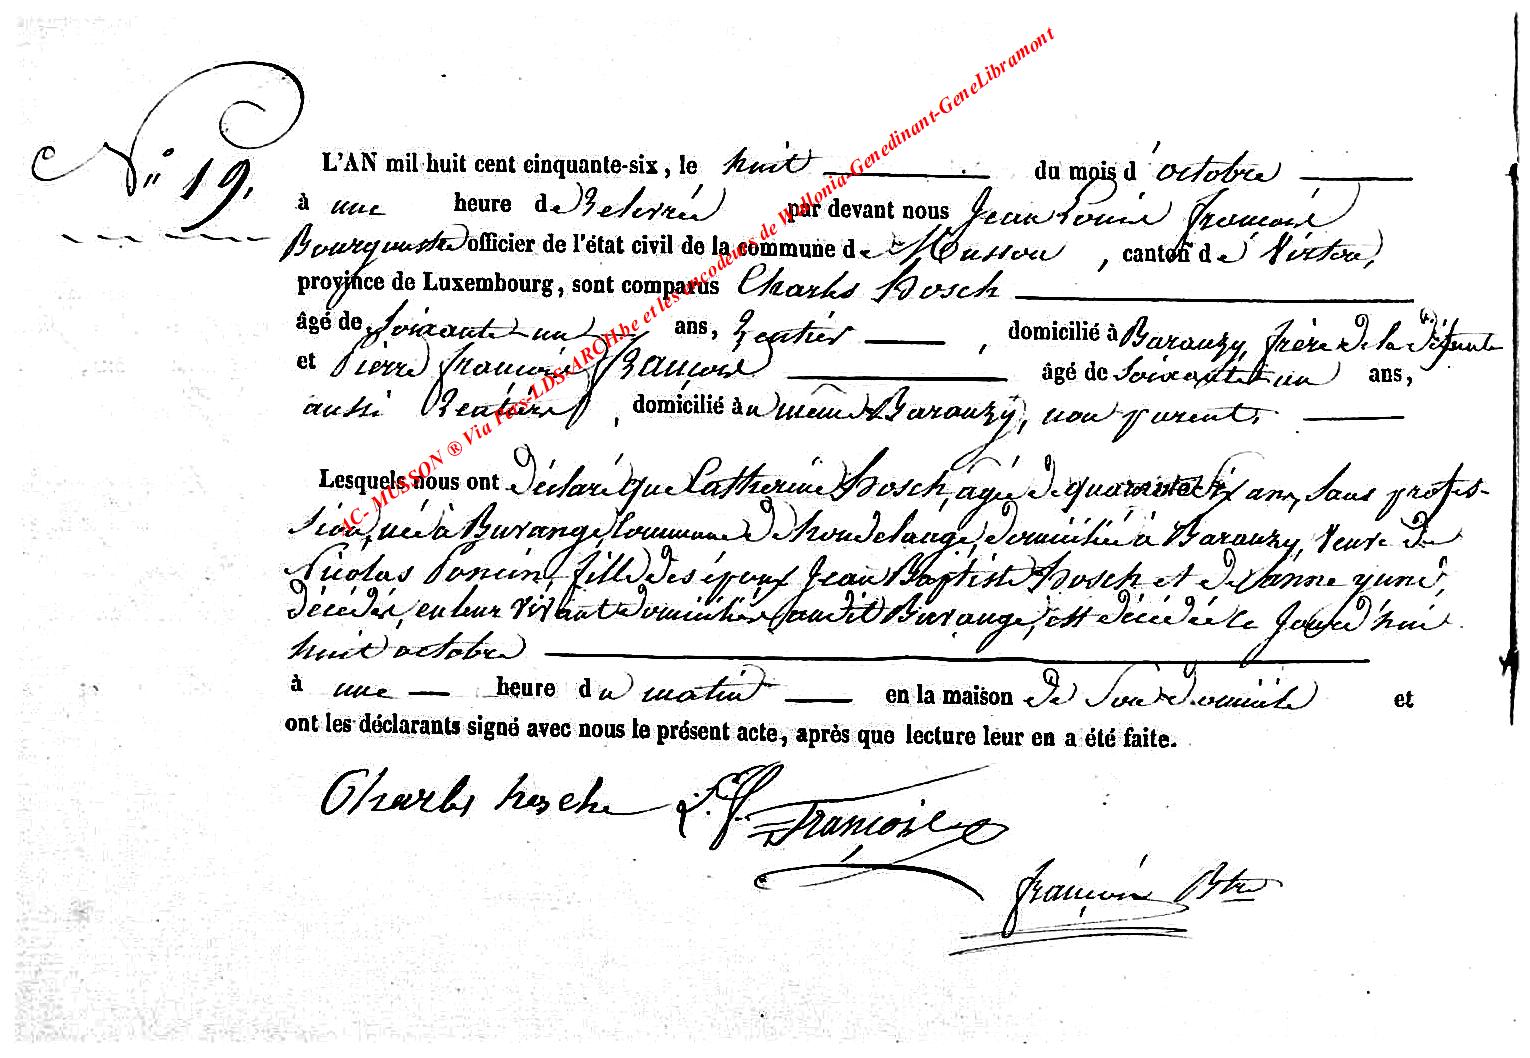 N° 19.
L'AN mil huit cent cinquante-six, le huit du mois d'octobre
à une heure de Relevée par devant nous Jean Louis françois
Bourgmestre officier de l'état civil de la commune de Musson, canton de Virton,
province de Luxembourg, sont comparus Charles Hosch
âgé de Soixante un ans, Rentier, domicilié à Baranzy, frère de la défunte
et Pierre françois François âgé de Soixante un ans,
aussi Rentier, domicilié au même Baranzy, non parent.
Lesquels nous ont déclaré que Catherine Hosch, agée de Six ans, Sans profes-
sion, née à Buvange, Commune de hondelange, domiciliée à Baranzy, Veuve de
Nicolas Poncin, fille des époux Jean Baptiste Hosch et de anne
décédés, en leur vivant domiciliés audit Buvange, est décédée le Jourd'hui
huit octobre
à une heure du matin en la maison de Son domicile et
ont les déclarants signé avec nous le présent acte, après que lecture leur en a été faite.
Charles hosche P. F. François
françois Btre
AC- MUSSON ® Via Fars-LDS-ARCH.be et les encodeurs de Wallonia-Genedinant-GeneLibramont